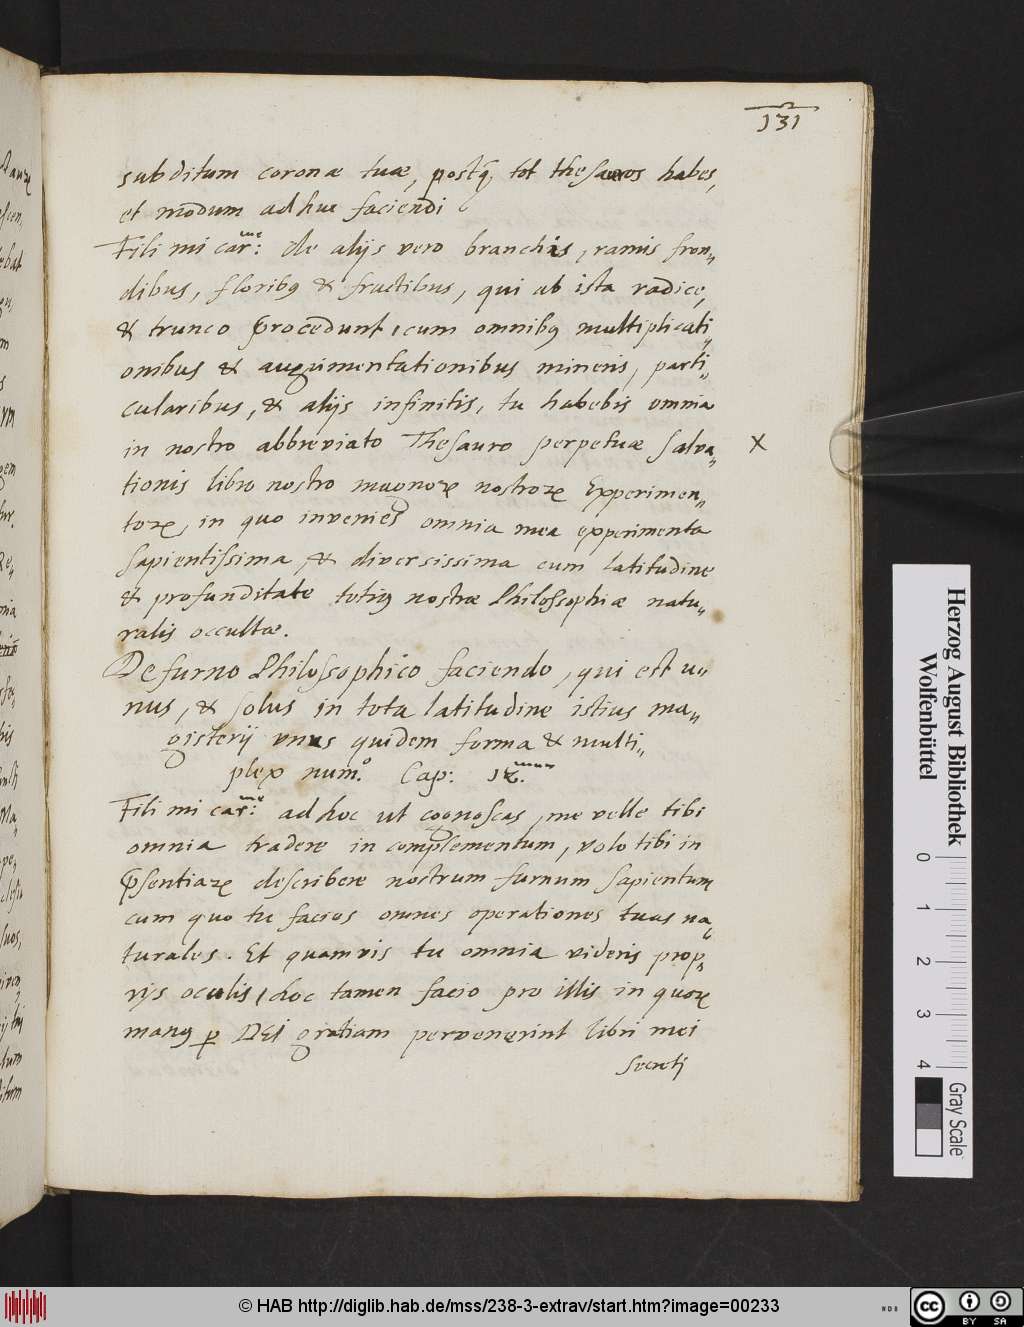 131
subditum coronæ tuæ, postq̃ tot thesauros habes,
et modum adhuc faciendi
Fili mi carme: de alijs vero branchis, ramis fron„
dibus, floribꝰ & fructibus, qui ab ista radice,
& trunco procedunt, cum omnibꝰ multiplicati„
onibus & augumentationibus mineris, parti„
cularibus, & alijs infinitis, tu habebis omnia
in nostro abbreviato Thesauro perpetuæ salva„ X
tionis libro nostro magnorꝝ nostrorꝝ Experimen„
torꝝ, in quo invenies omnia mea experimenta
sapientissima, & diversissima cum latitudine
& profunditate totiꝰ nostræ Philosophiæ natu„
ralis occultæ.
De furno Philosophico faciendo, qui est u„
nus, & solus in tota latitudine istius ma„
gisterij vnus quidem forma & multi„
plex num.º Cap:
Fili mi carme: ad hoc ut cognoscas, me velle tibi
omnia tradere in complementum, volo tibi in
p̃sentiarꝝ describere nostrum furnum sapientum
cum quo tu facies omnes operationes tuas na„
turales. Et quamvis tu omnia videris prop„
rijs oculis, hoc tamen facio pro illis in quorꝝ
manꝰ ꝑ DEI gratiam pervenerint libri mei
Secreti
Herzog August Bibliothek
Wolfenbüttel
0 1 2 3 4
Gray Scale
© HAB http://diglib.hab.de/mss/238-3-extrav/start.htm?image=00233
cc BY SA